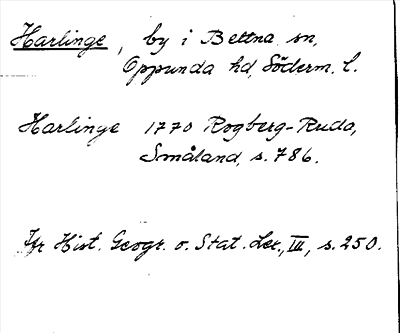 Harlinge, by i Bettna sn,
Oppunda hd, Söderm. l.
Harlinge 1770 Rogberg-Ruda,
Småland, s. 786.
Jfr Hist. Geogr. o. Stat. Lex., III, s. 250.